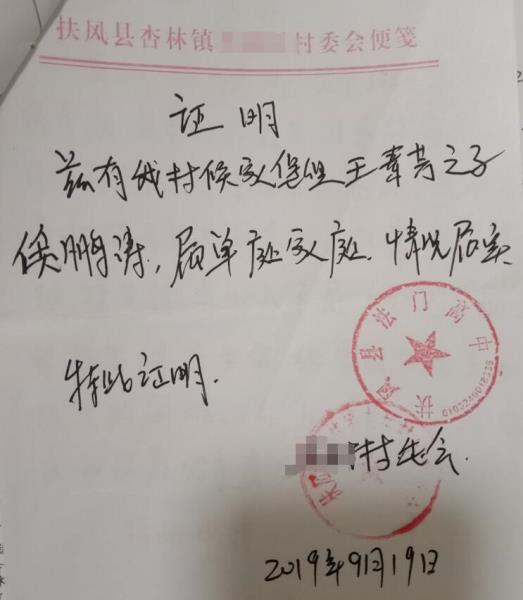 扶风县杏林镇 村委会便笺
证明
兹有我村候家堡组王之子
侯鹏涛，属单庭家庭.情况属实
特此证明.
扶风县法门高中
村委会.
2019年9月19日